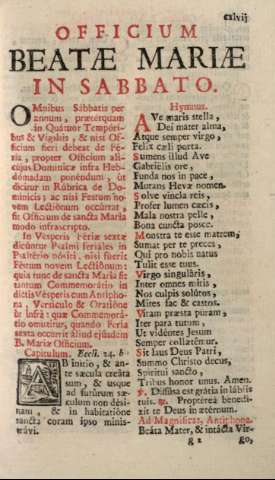 cxlvij
OFFICIUM
BEATÆ MARIÆ
IN SABBATO.
OMnibus Sabbatis per
annum, præterquam
in Quátuor Tempóri-
bus & Vigiliis, & nisi Of-
ficium fieri debeat de Fé-
ria, propter Officium ali-
cújus Domínicæ infra Heb-
dómadam ponéndum, ut
dícitur in Rúbrica de Do-
mínicis; ac nisi Festum no-
vem Lectiónum occúrrat,
fit Officium de sancta María
modo infrascripto.
In Vésperis Fériæ sextæ
dicúntur Psalmi feriáles in
Psaltério pósiti, nisi fúerit
Festum novem Lectiónum:
quia tunc de sancta María fit
tantum Commemorátio in
dictis Vésperis cum Antípho-
na, Versículo & Oratióne
ut infrà: quæ Commemorá-
tio omittitur, quando Féria
sexta occúrrit áliud ejúsdem
B. Maríæ Officium.
Capítulum. Eccli. 24. b
AB inítio, & an-
te sǽcula creáta
sum, & usque
ad futúrum sǽ-
culum non dési-
nam, & in habitatióne
sancta coram ipso minis-
trávi.
Hymnus.
AVe maris stella,
Dei mater alma,
Atque semper virgo,
Felix cæli porta.
Sumens illud Ave
Gabriélis ore,
Funda nos in pace,
Mutans Hevæ nomen.
Solve vincla reis,
Profer lumen cæcis,
Mala nostra pelle,
Bona cuncta posce.
Monstra te esse matrem,
Sumat per te preces,
Qui pro nobis natus
Tulit esse tuus.
Virgo singuláris,
Inter omnes mitis,
Nos culpis solútos,
Mites fac & castos.
Vitam præsta puram,
Iter para tutum,
Ut vidéntes Jesum
Semper collætémur.
Sit laus Deo Patri,
Summo Christo decus,
Spirítui sancto,
Tribus honor unus. Amen.
℣. Diffúsa est grátia in lábiis
tuis. ℟. Proptérea benedí-
xit te Deus in ætérnum.
Ad Magníficat, Antíphona.
Beáta Mater, & intácta Vir-
g 2 go,